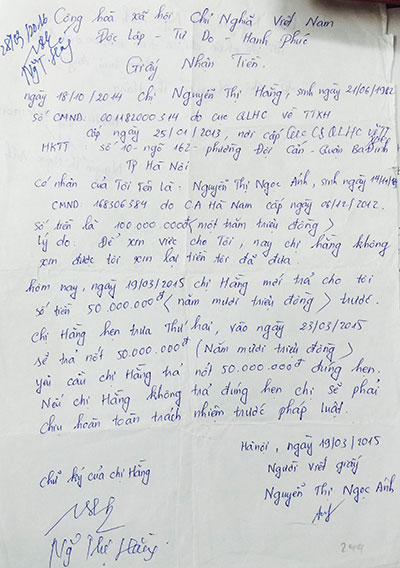 28/03/2016
Ng T Hằng
Cộng hoà xã hội Chủ Nghĩa Việt Nam
Độc Lập - Tự Do - Hạnh Phúc
Giấy Nhận Tiền.
ngày 18/10/2014 chị Nguyễn Thị Hằng, sinh ngày 21/06/1982
số CMND: 001182000314 do cục QLHC về TTXH
cấp ngày 25/01/2013, nơi cấp cục CS QLHC về TT XH
HKTT: số 10- ngõ 162- phường Đội Cấn - Quận Ba Đình
TP Hà Nội
Có nhận của Tôi Tên Là: Nguyễn Thị Ngọc Anh, sinh ngày
CMND: 168306384 do CA Hà Nam cấp ngày 06/12/2012.
số tiền là 100.000.000đ <một trăm triệu đồng>
Lý do: Để xin việc cho Tôi, nay chị hằng không
xin được tôi xin lại tiền tôi đã đưa.
hôm nay, ngày 19/03/2015 chị Hằng mới trả cho tôi
số tiền 50.000.000đ <năm mươi triệu đồng> trước.
Chị Hằng hẹn trưa Thứ hai, vào ngày 23/03/2015
sẽ trả nốt 50.000.000đ (Năm mươi triệu đồng>
yêu cầu chị Hằng trả nốt 50.000.000đ đúng hẹn.
Nếu chị Hằng không trả đúng hẹn chị sẽ phải
chịu hoàn toàn trách nhiệm trước pháp luật.
Hà nội, ngày 19/03/2015
Chữ ký của chị Hằng
Người viết giấy
Nguyễn Thị Ngọc Anh
Ng Thị Hằng
244